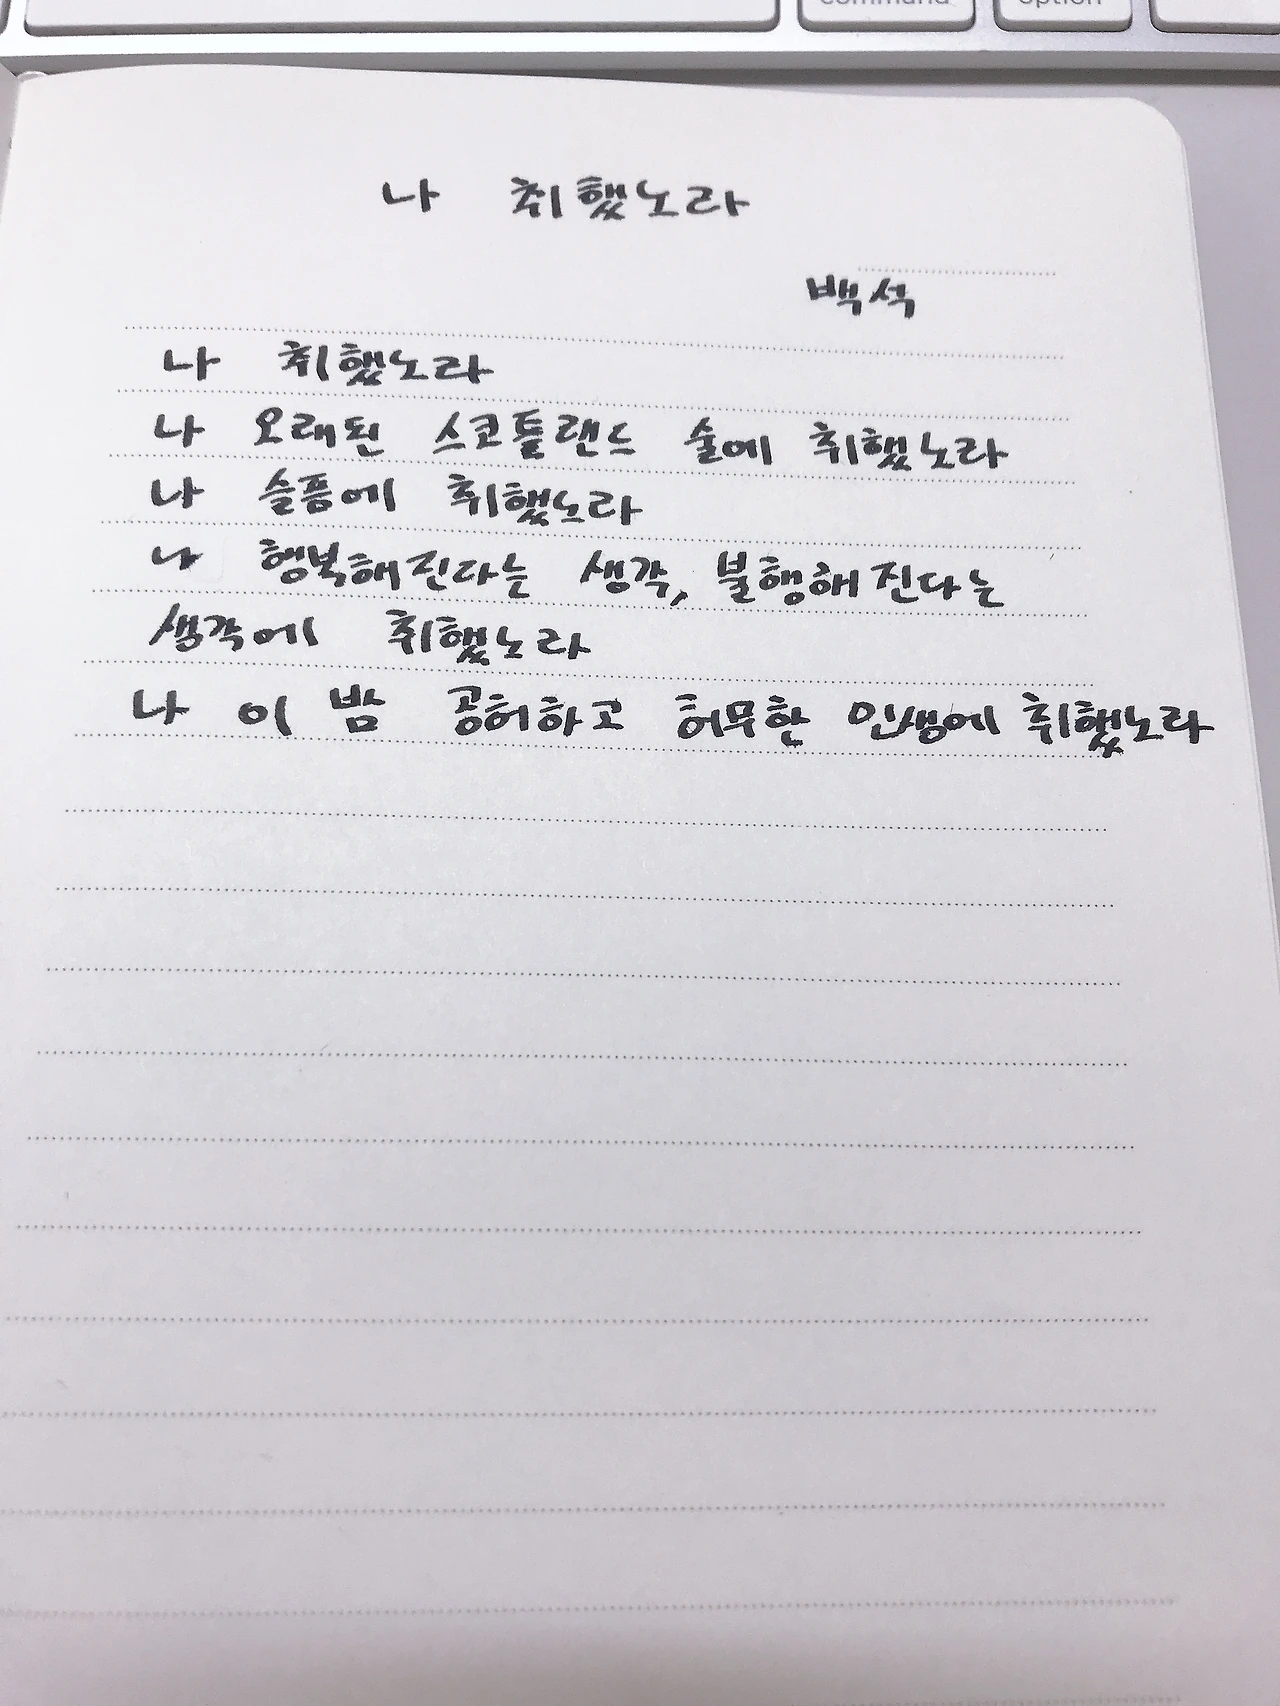 command
option
나 취했노라
백석
나 취했노라
나 오래된 스코틀랜드 술에 취했노라
나 슬픔에 취했노라
나 행복해진다는 생각, 불행해진다는
생각에 취했노라
나 이 밤 공허하고 허무한 인생에 취했노라